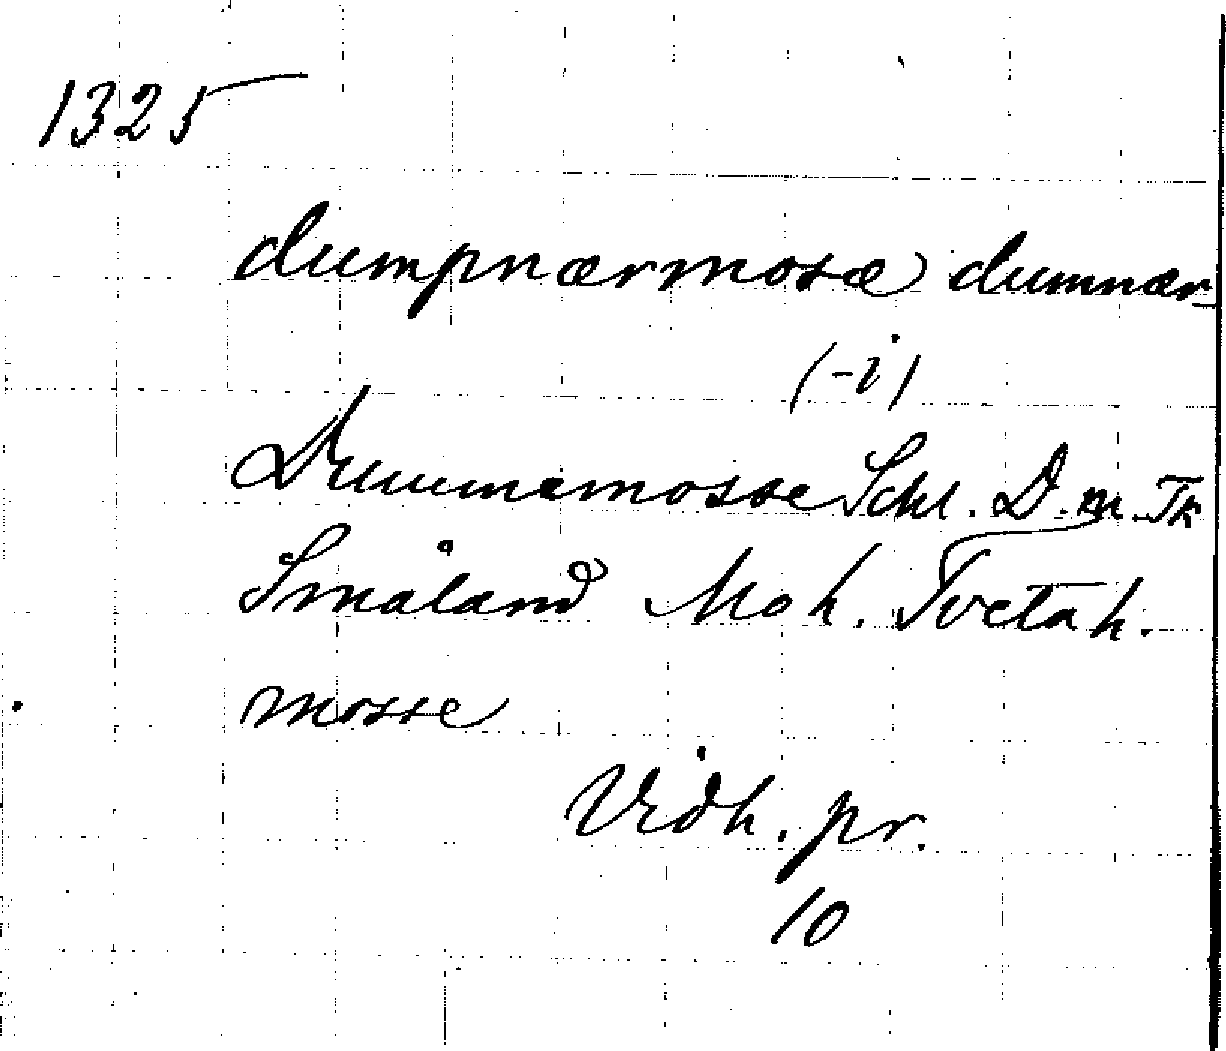 1325
dumpnærmosæ dumnær-
(-i)
Dummemosse Schl. D. m. Tk
Småland Mo h. Tveta h.
mosse
Vidh. pr.
10